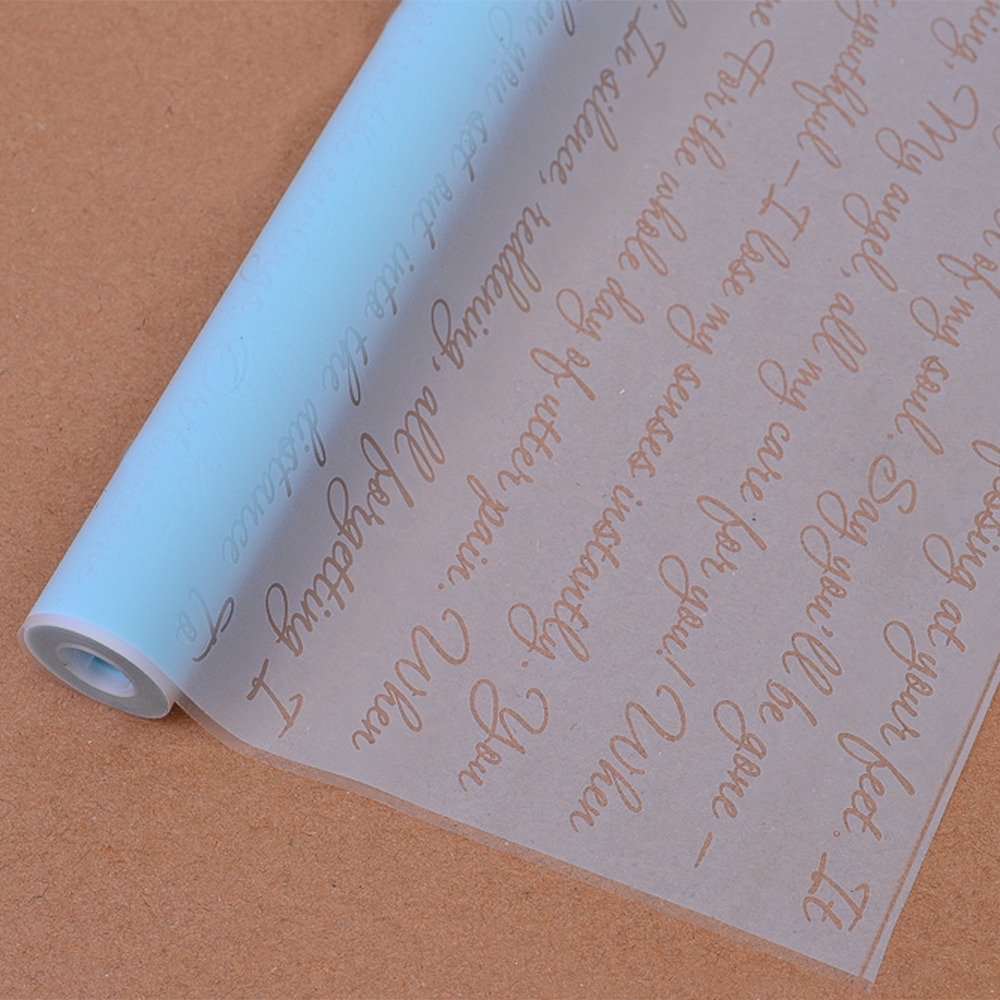 at your feet. It
of my soul. Say you'll be gone —
My angel, all my care for you! When
youthful – I lose my senses instantly. You
For the whole day of utter pain. When
In silence, reddening, all forgetting I
you set out into the distance To